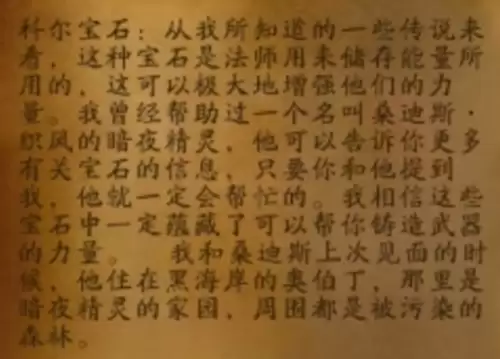 科尔宝石：从我所知道的一些传说来
看，这种宝石是法师用来储存能量所
用的，这可以极大地增强他们的力
量。我曾经帮助过一个名叫桑迪斯·
织风的暗夜精灵，他可以告诉你更多
有关宝石的信息，只要你和他提到
我，他就一定会帮忙的。我相信这些
宝石中一定蕴藏了可以帮你铸造武器
的力量。 我和桑迪斯上次见面的时
候，他住在黑海岸的奥伯丁，那里是
暗夜精灵的家园，周围都是被污染的
森林。